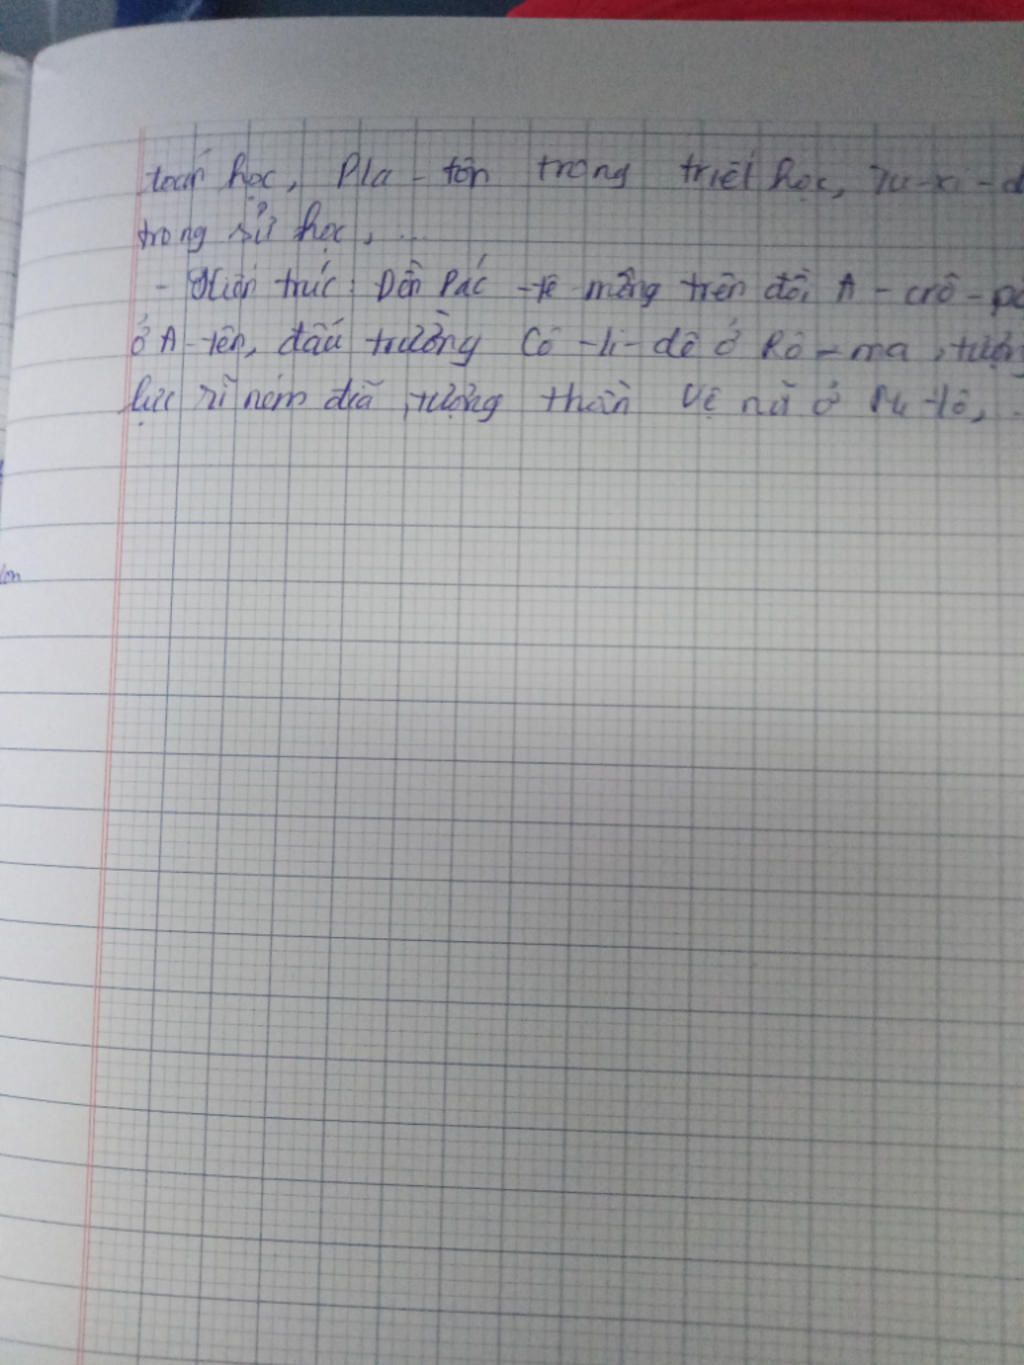 toán học, Pla - tôn trong triết học, Tu-xi-đ
trong sử học, ...
- Kiến trúc: Dền Pác - tê nông trên đồi A - crô - pô
ở A-ten, đấu trường Cô - li - dê ở Rô - ma, tượng
lực sĩ ném đĩa, tượng thần Vệ nữ ở Mi-lô, ..
lon